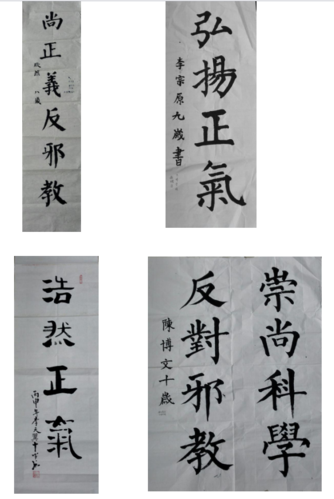 尚正義反邪教
八歲
弘揚正氣
李宗原九歲書
浩然正氣
崇尚科學
反對邪教
陳博文十歲